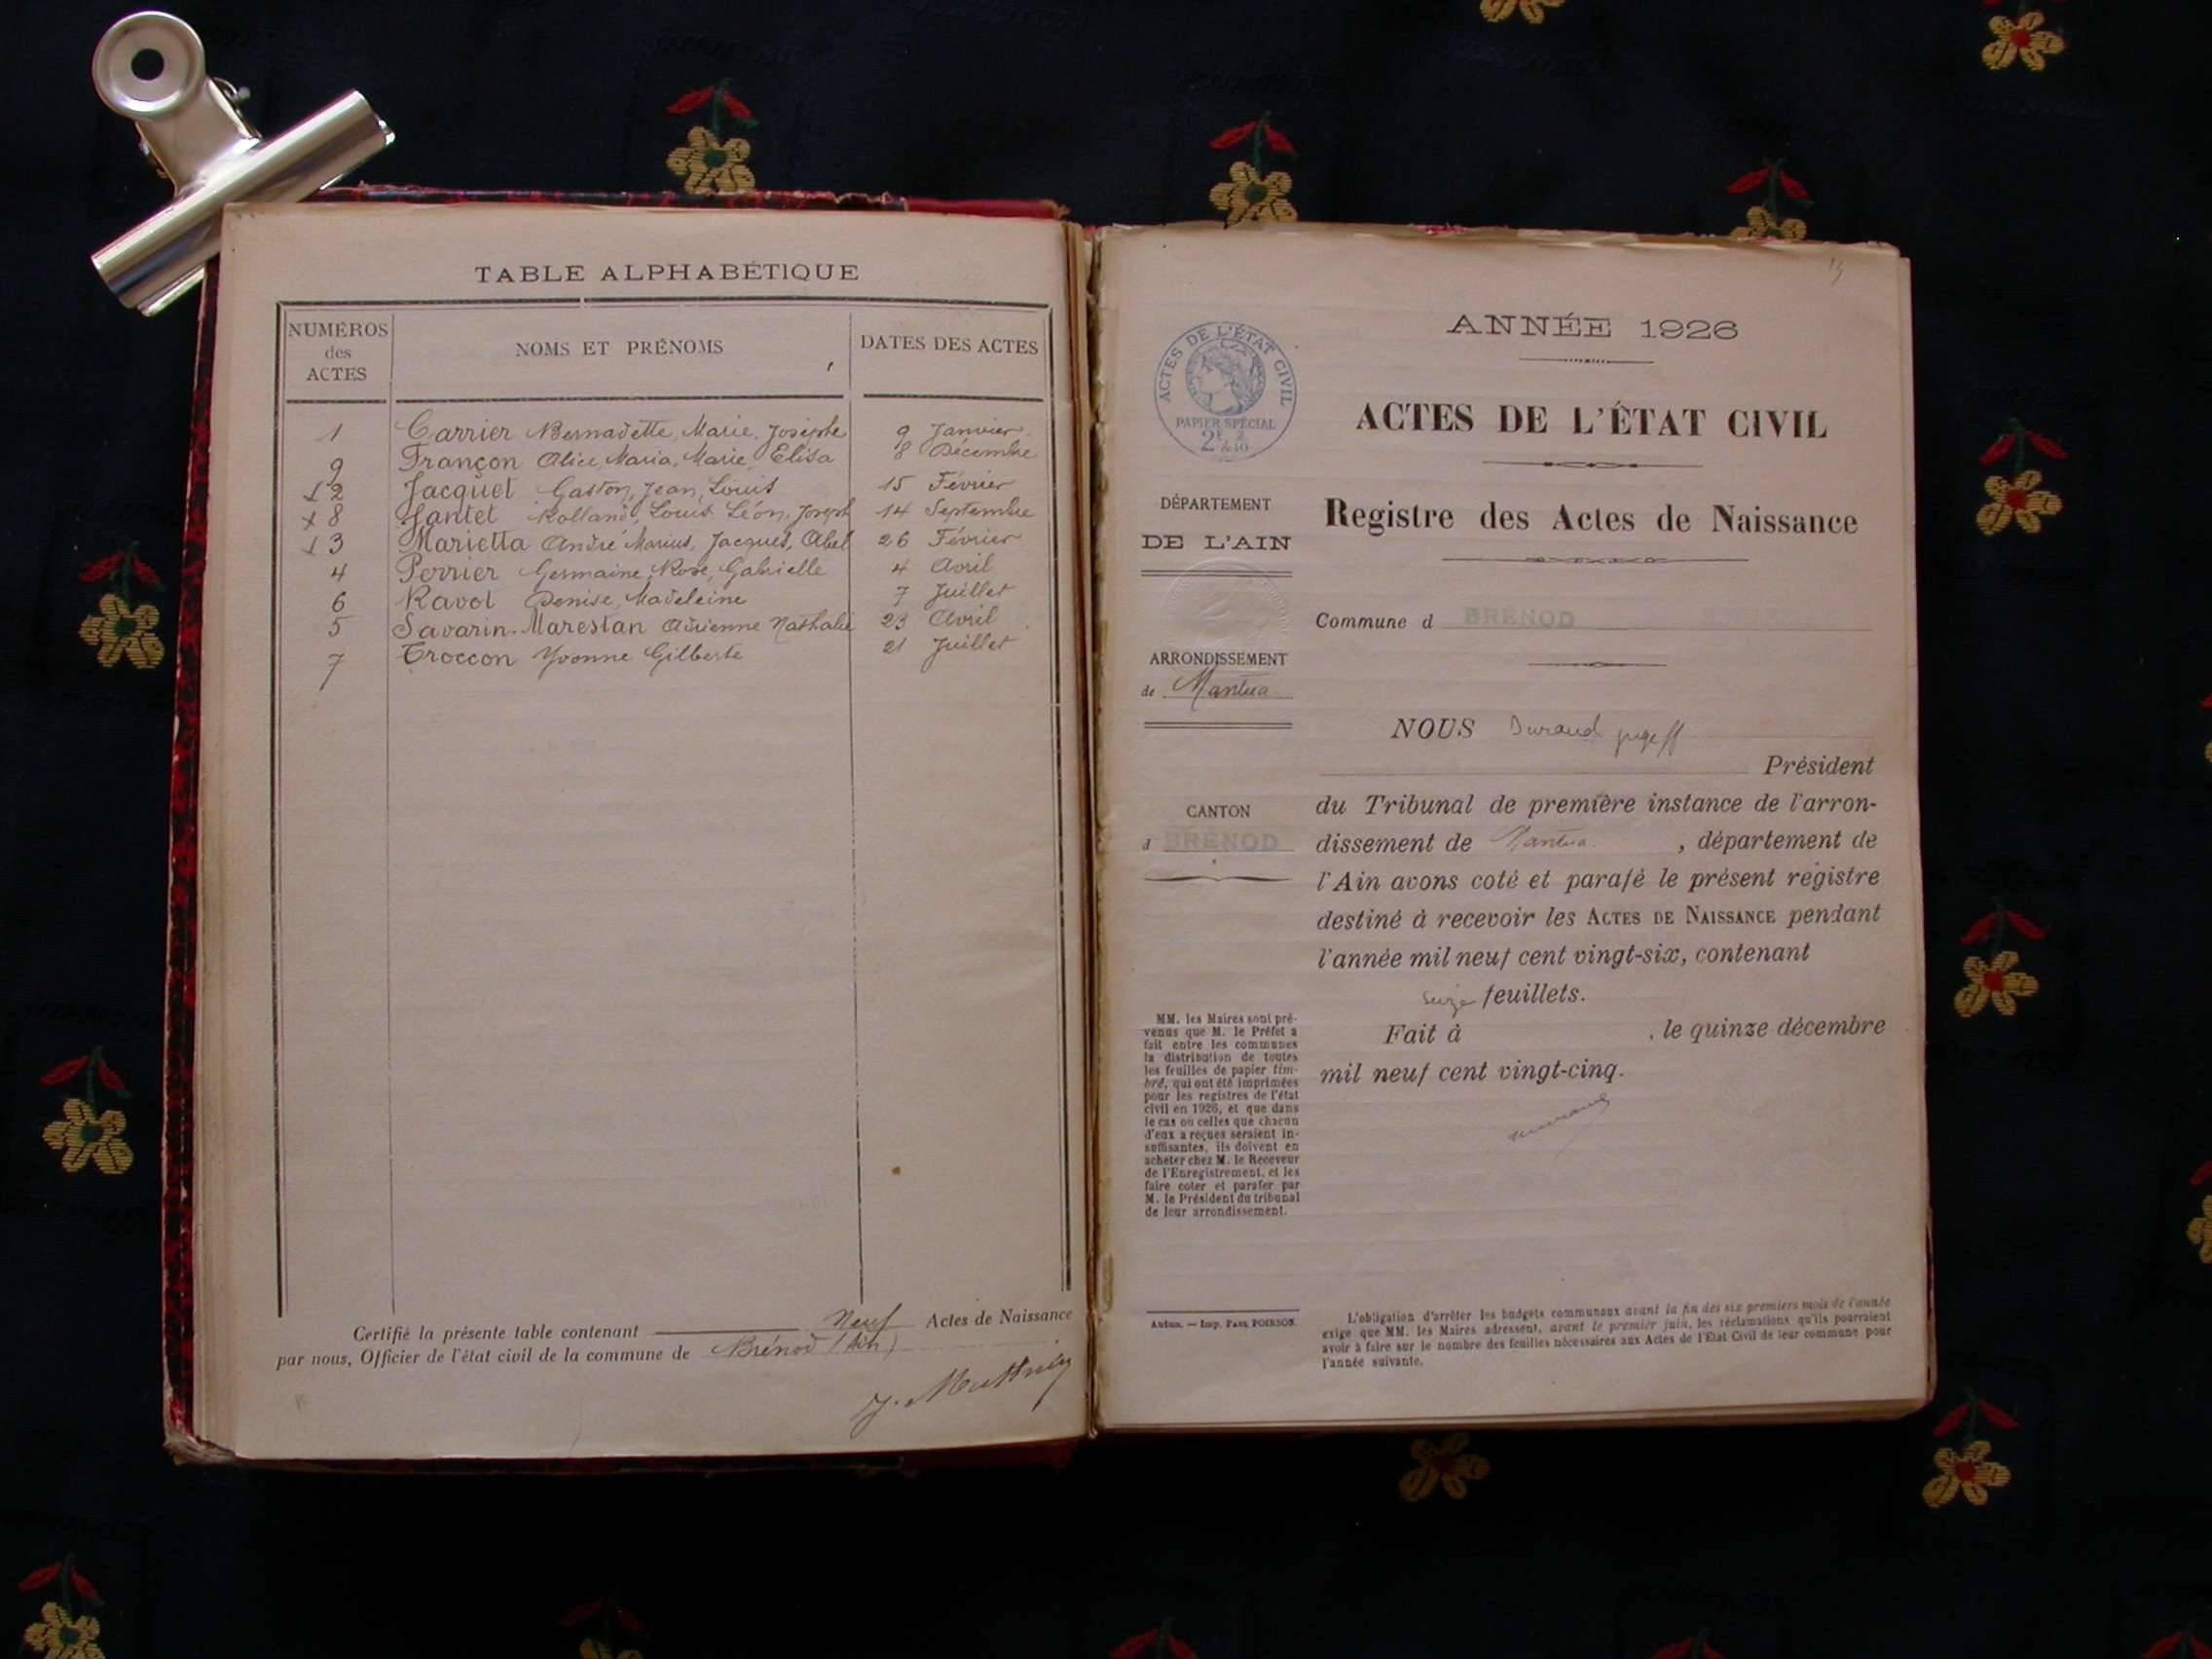 TABLE ALPHABÉTIQUE
NUMÉROS des ACTES
NOMS ET PRÉNOMS
DATES DES ACTES
1 Carrier Bernadette, Marie, Josèphe 9 Janvier
9 Françon Alice, Maria, Marie, Elisa 8 Décembre
x2 Jacquet Gaston, Jean, Louis 15 Février
x8 Jantet Rolland, Louis Léon, Joseph 14 Septembre
x3 Marietta André Marius, Jacques, Abel 26 Février
4 Perrier Germaine, Rose, Gabrielle 4 Avril
6 Ravot Denise, Madeleine 7 Juillet
5 Savarin-Marestan Adrienne Nathalie 23 Avril
7 Troccon Yvonne Gilberte 21 Juillet
Certifié la présente table contenant Neuf Actes de Naissance
par nous, Officier de l'état civil de la commune de Brénod (Ain)
ANNÉE 1926
ACTES DE L'ÉTAT CIVIL
PAPIER SPÉCIAL
ACTES DE L'ÉTAT CIVIL
Registre des Actes de Naissance
DÉPARTEMENT
DE L'AIN
Commune d BRÉNOD
ARRONDISSEMENT
de Nantua
NOUS Durand
Président
CANTON
d BRÉNOD
du Tribunal de première instance de l'arron-
dissement de Nantua , département de
l'Ain avons coté et parafé le présent registre
destiné à recevoir les ACTES DE NAISSANCE pendant
l'année mil neuf cent vingt-six, contenant
seize feuillets.
Fait à , le quinze décembre
mil neuf cent vingt-cinq.
MM. les Maires sont pré-
venus que M. le Préfet a
fait entre les communes
la distribution de toutes
les feuilles de papier tim-
bré, qui ont été imprimées
pour les registres de l'état
civil en 1926, et que dans
le cas où celles que chacun
d'eux a reçues seraient in-
suffisantes, ils doivent en
acheter chez M. le Receveur
de l'Enregistrement, et les
faire coter et parafer par
M. le Président du tribunal
de leur arrondissement.
Autun. — Imp. Paul POIRSON.
L'obligation d'arrêter les budgets communaux avant la fin des six premiers mois de l'année
exige que MM. les Maires adressent, avant le premier juin, les réclamations qu'ils pourraient
avoir à faire sur le nombre des feuilles nécessaires aux Actes de l'État Civil de leur commune pour
l'année suivante.